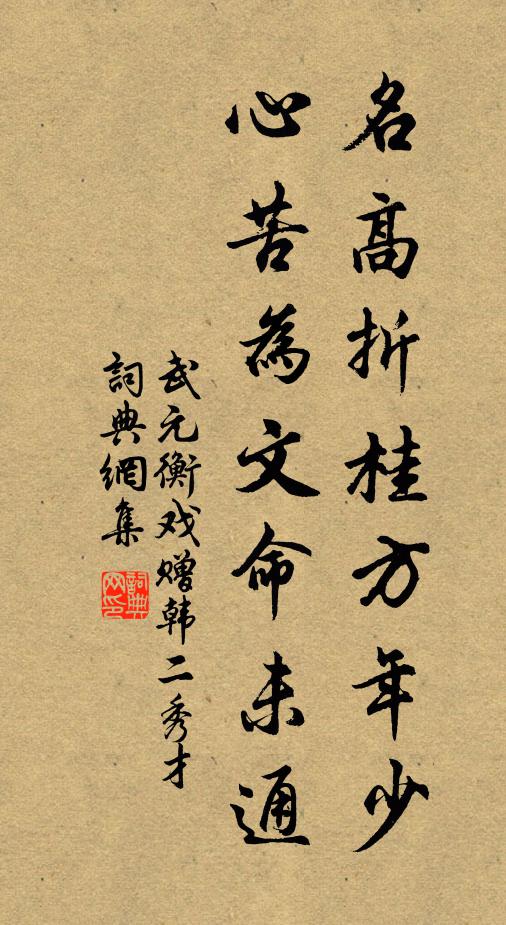 名高折桂方年少
心苦為文命未通
武元衡戏赠韩二秀才
詞典網集
詞典网印